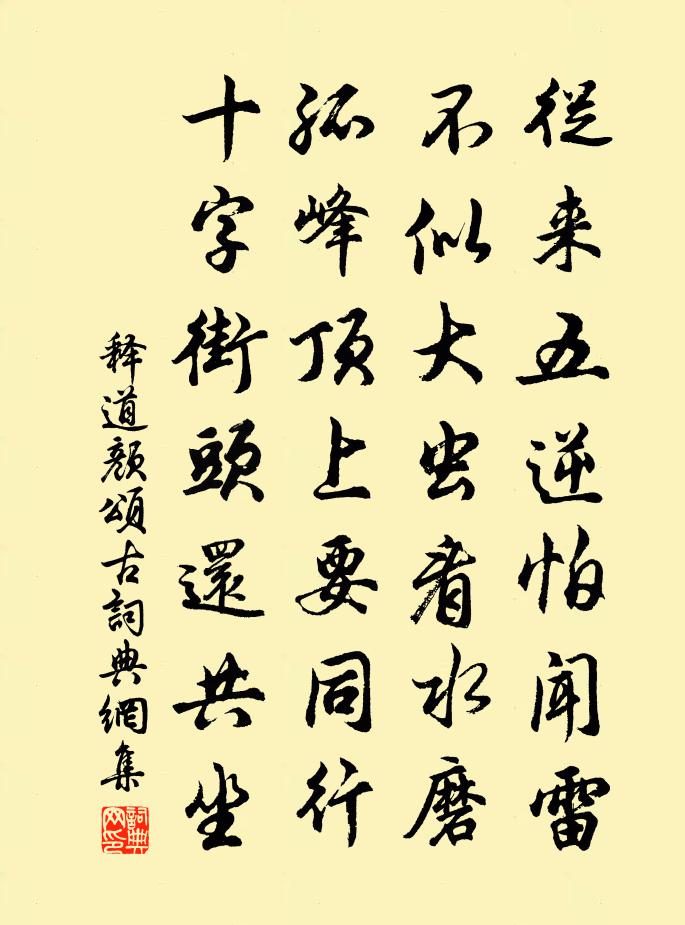 從来五逆怕闻雷
不似大虫看水磨
孤峰顶上要同行
十字街頭還共坐
释道颜頌古詞典網集
詞典网印